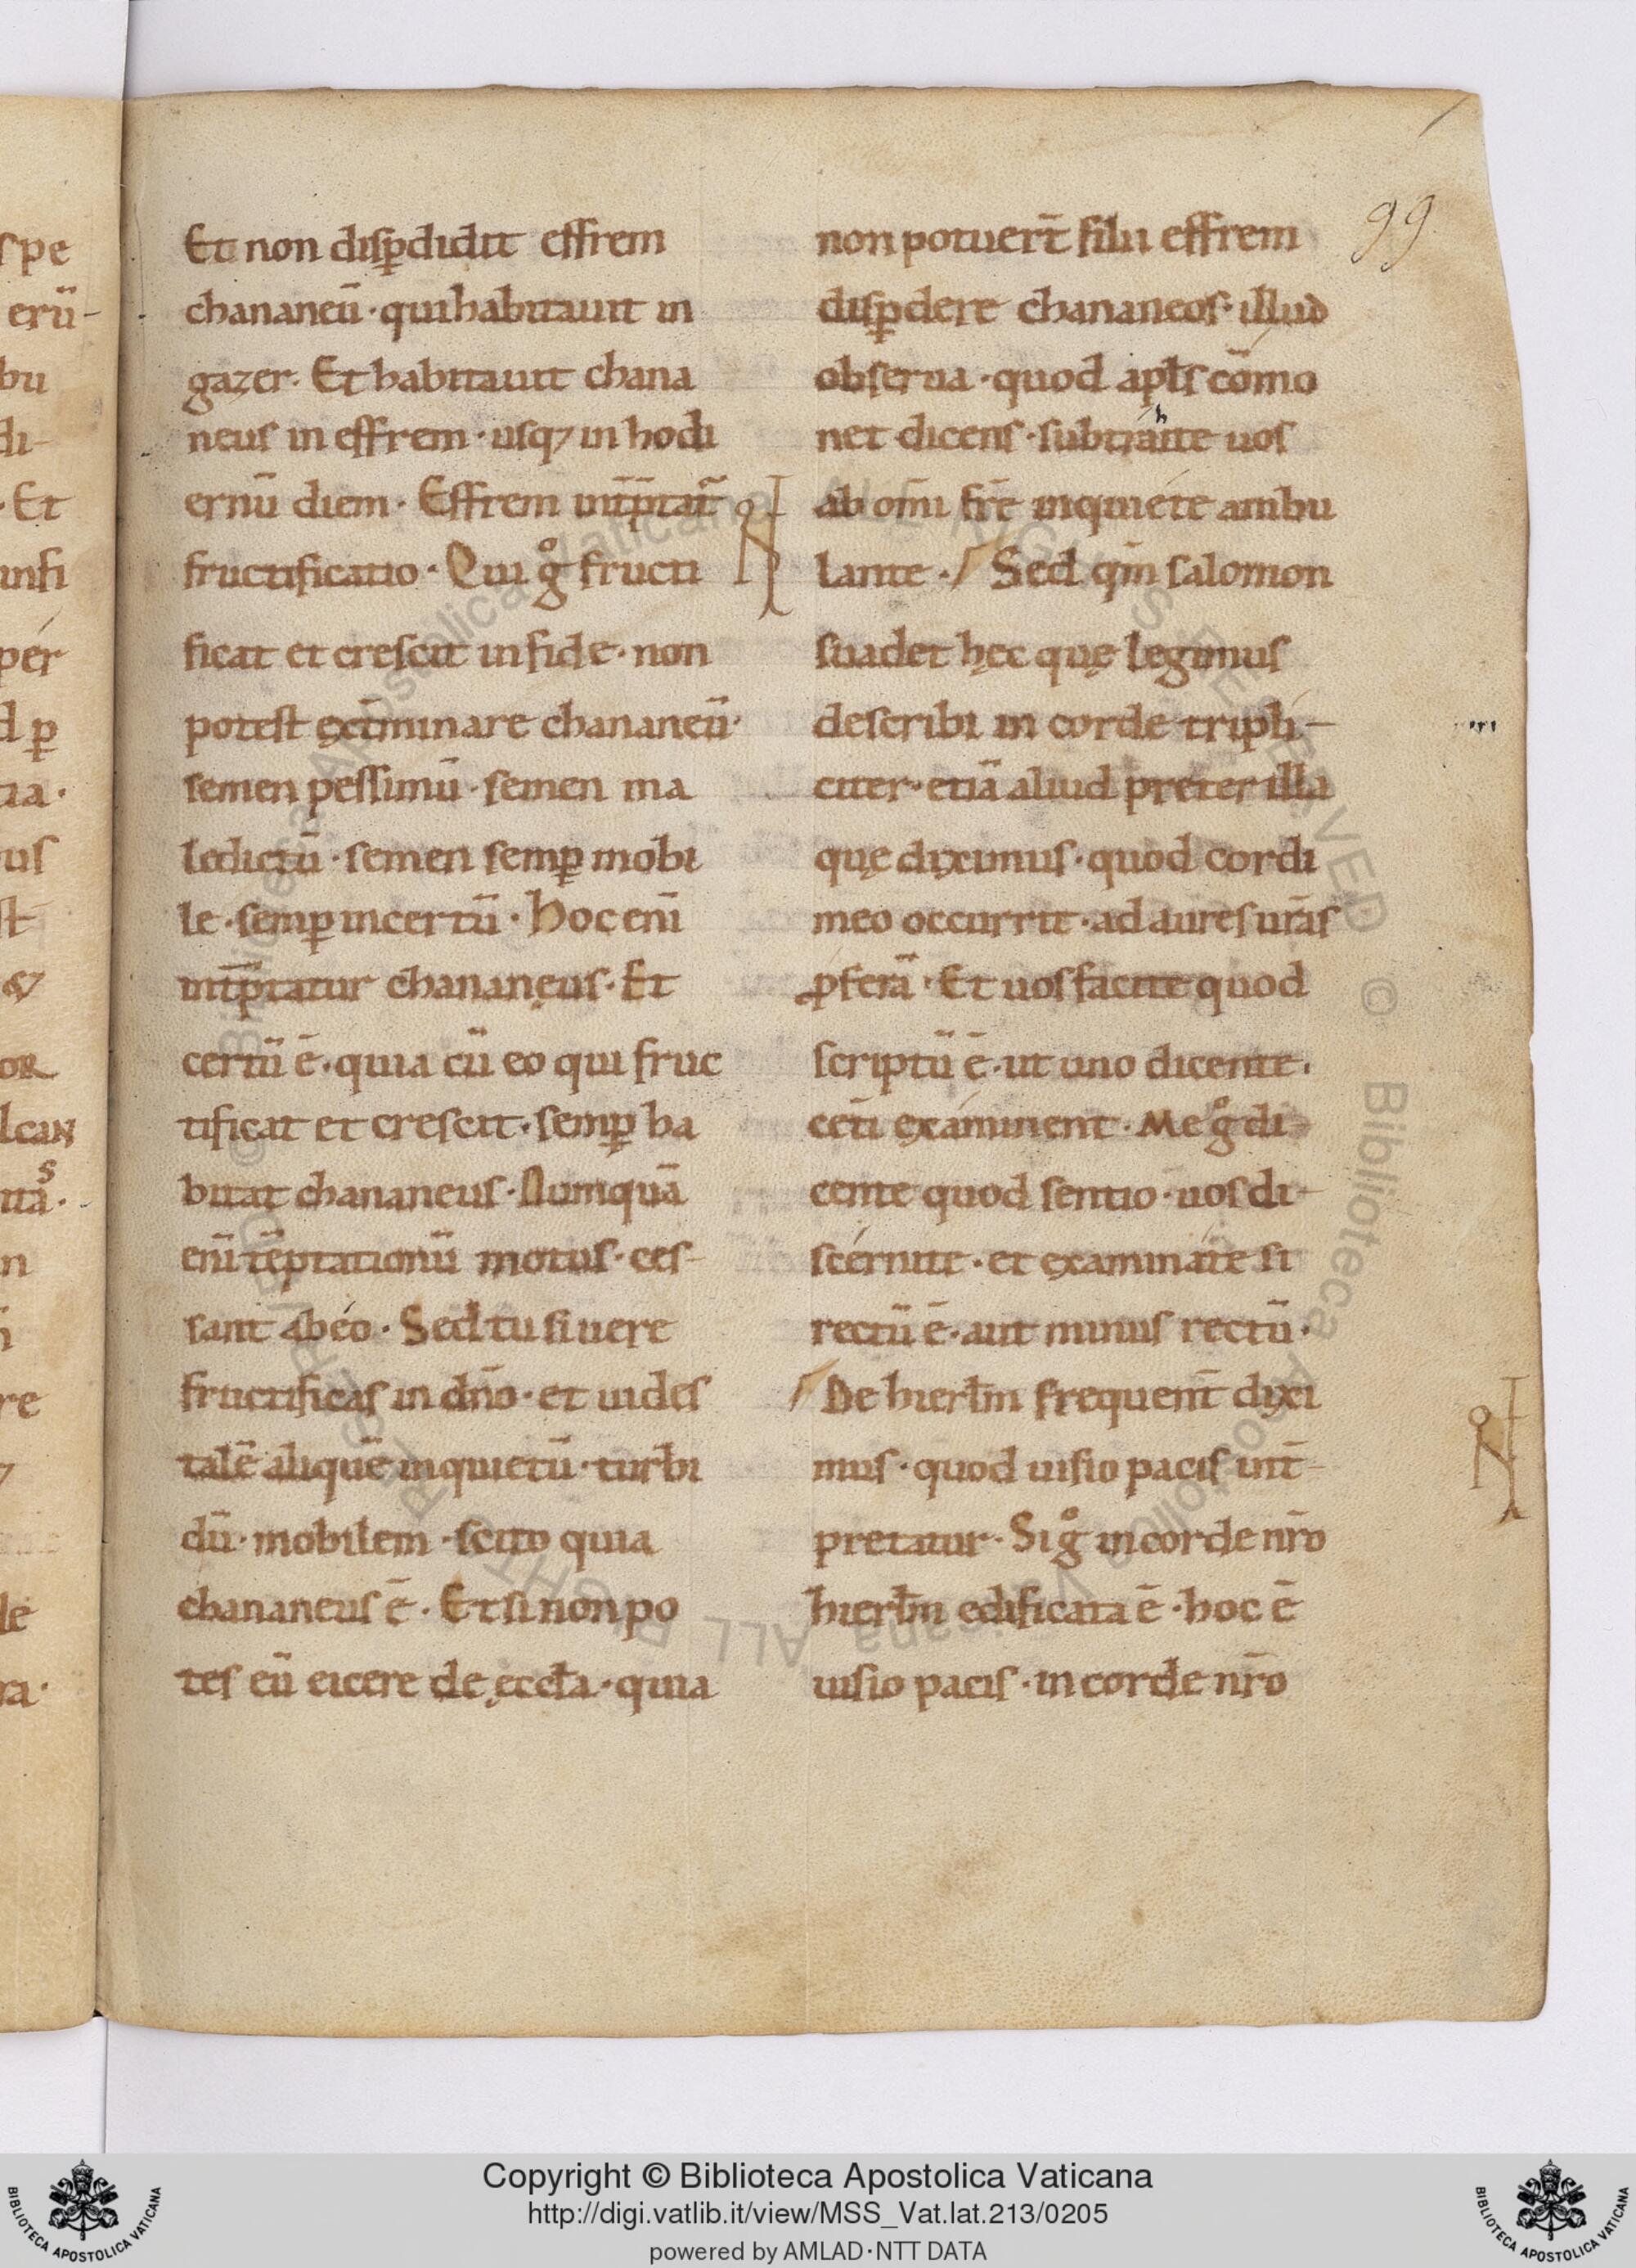 99
Et non disp̱didit effrem
chananeū · qui habitauit in
gazer · Et habitauit chana
neus in effrem · usq; in hodi
ernū diem · Effrem int̄p̄tat᷑
fructificatio · Qui gͦ fructi
ficat et crescit in fide · non
potest ext̄minare chananeū ·
semen pessimū · semen ma
ledictū · semen semꝑ mobi
le · semꝑ incertū · Hoc eni̅
int̄p̄tatur chananęus · Et
certū ē · quia cū eo qui fruc
tificat et crescit · semꝑ ha
bitat chananeus · Numquā
eni̅ tēptationū motus · ces-
sant ab eo · Sed tu si uere
fructificas in dn̄o · et uides
talē aliquē inquietū · turbi
dū · mobilem · scito quia
chananeus ē · Et si non po
tes eū eicere de ęccl̄a · quia
non potuer̄t filii effrem
disꝑdere chananeos · illud
obserua · quod apl̄s cōmo
net dicens · subtrahite uos
ab om̄i fr̄e inquiete ambu
lante · Sed qm̄ salomon
suadet hęc quę legimus
describi in corde tripli-
citer · etiā aliud preter illa
quę diximus · quod cordi
meo occurrit · ad aures ur̄as
ꝓferā · Et uos facite quod
scriptū ē · ut uno dicente ·
cet̄i examinent · Me gͦ di-
cente quod sentio · uos di-
scernite · et examinate si
rectū ē · aut minus rectū ·
De hierl̄m frequent̄ dixi
mus · quod uisio pacis int̄-
pretatur · Si gͦ in corde nr̄o
hierl̄m edificata ē · hoc ē
uisio pacis · in corde nr̄o
Copyright © Biblioteca Apostolica Vaticana
http://digi.vatlib.it/view/MSS_Vat.lat.213/0205
powered by AMLAD·NTT DATA
BIBLIOTECA APOSTOLICA VATICANA
BIBLIOTECA APOSTOLICA VATICANA